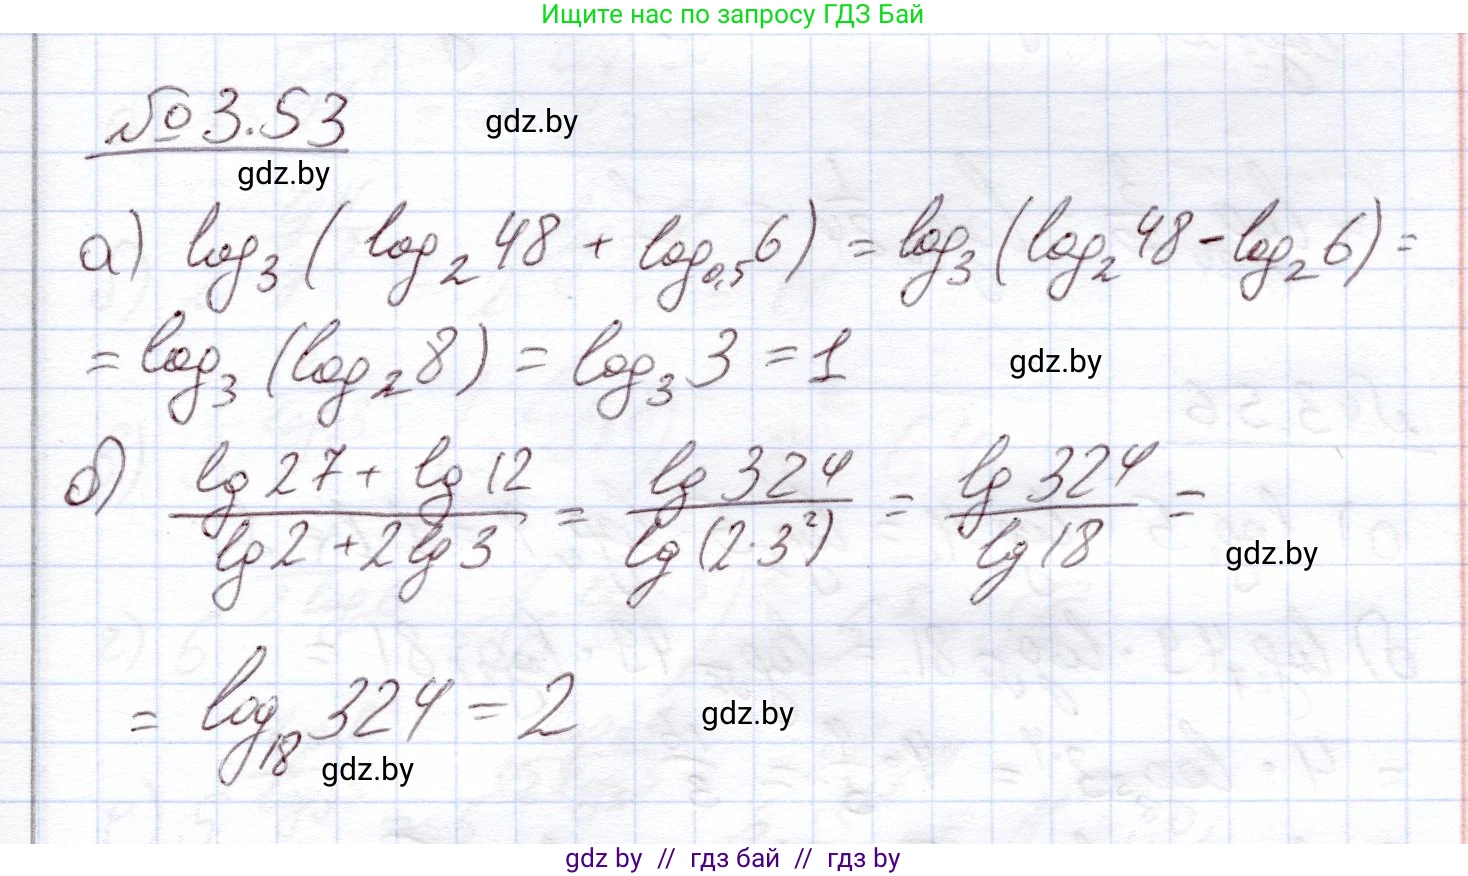 Ищите нас по запросу ГДЗ Бай
№ 3.53
gdz.by
gdz.by
а) log₃( log₂48 + log₀,₅6) = log₃(log₂48 - log₂6) =
= log₃(log₂8) = log₃3 = 1
gdz.by
б) (lg 27 + lg 12)/(lg 2 + 2 lg 3) = (lg 324)/(lg (2·3²)) = (lg 324)/(lg 18) =
gdz.by
= log₁₈324 = 2
gdz.by
gdz.by
gdz by // гдз бай // гдз by